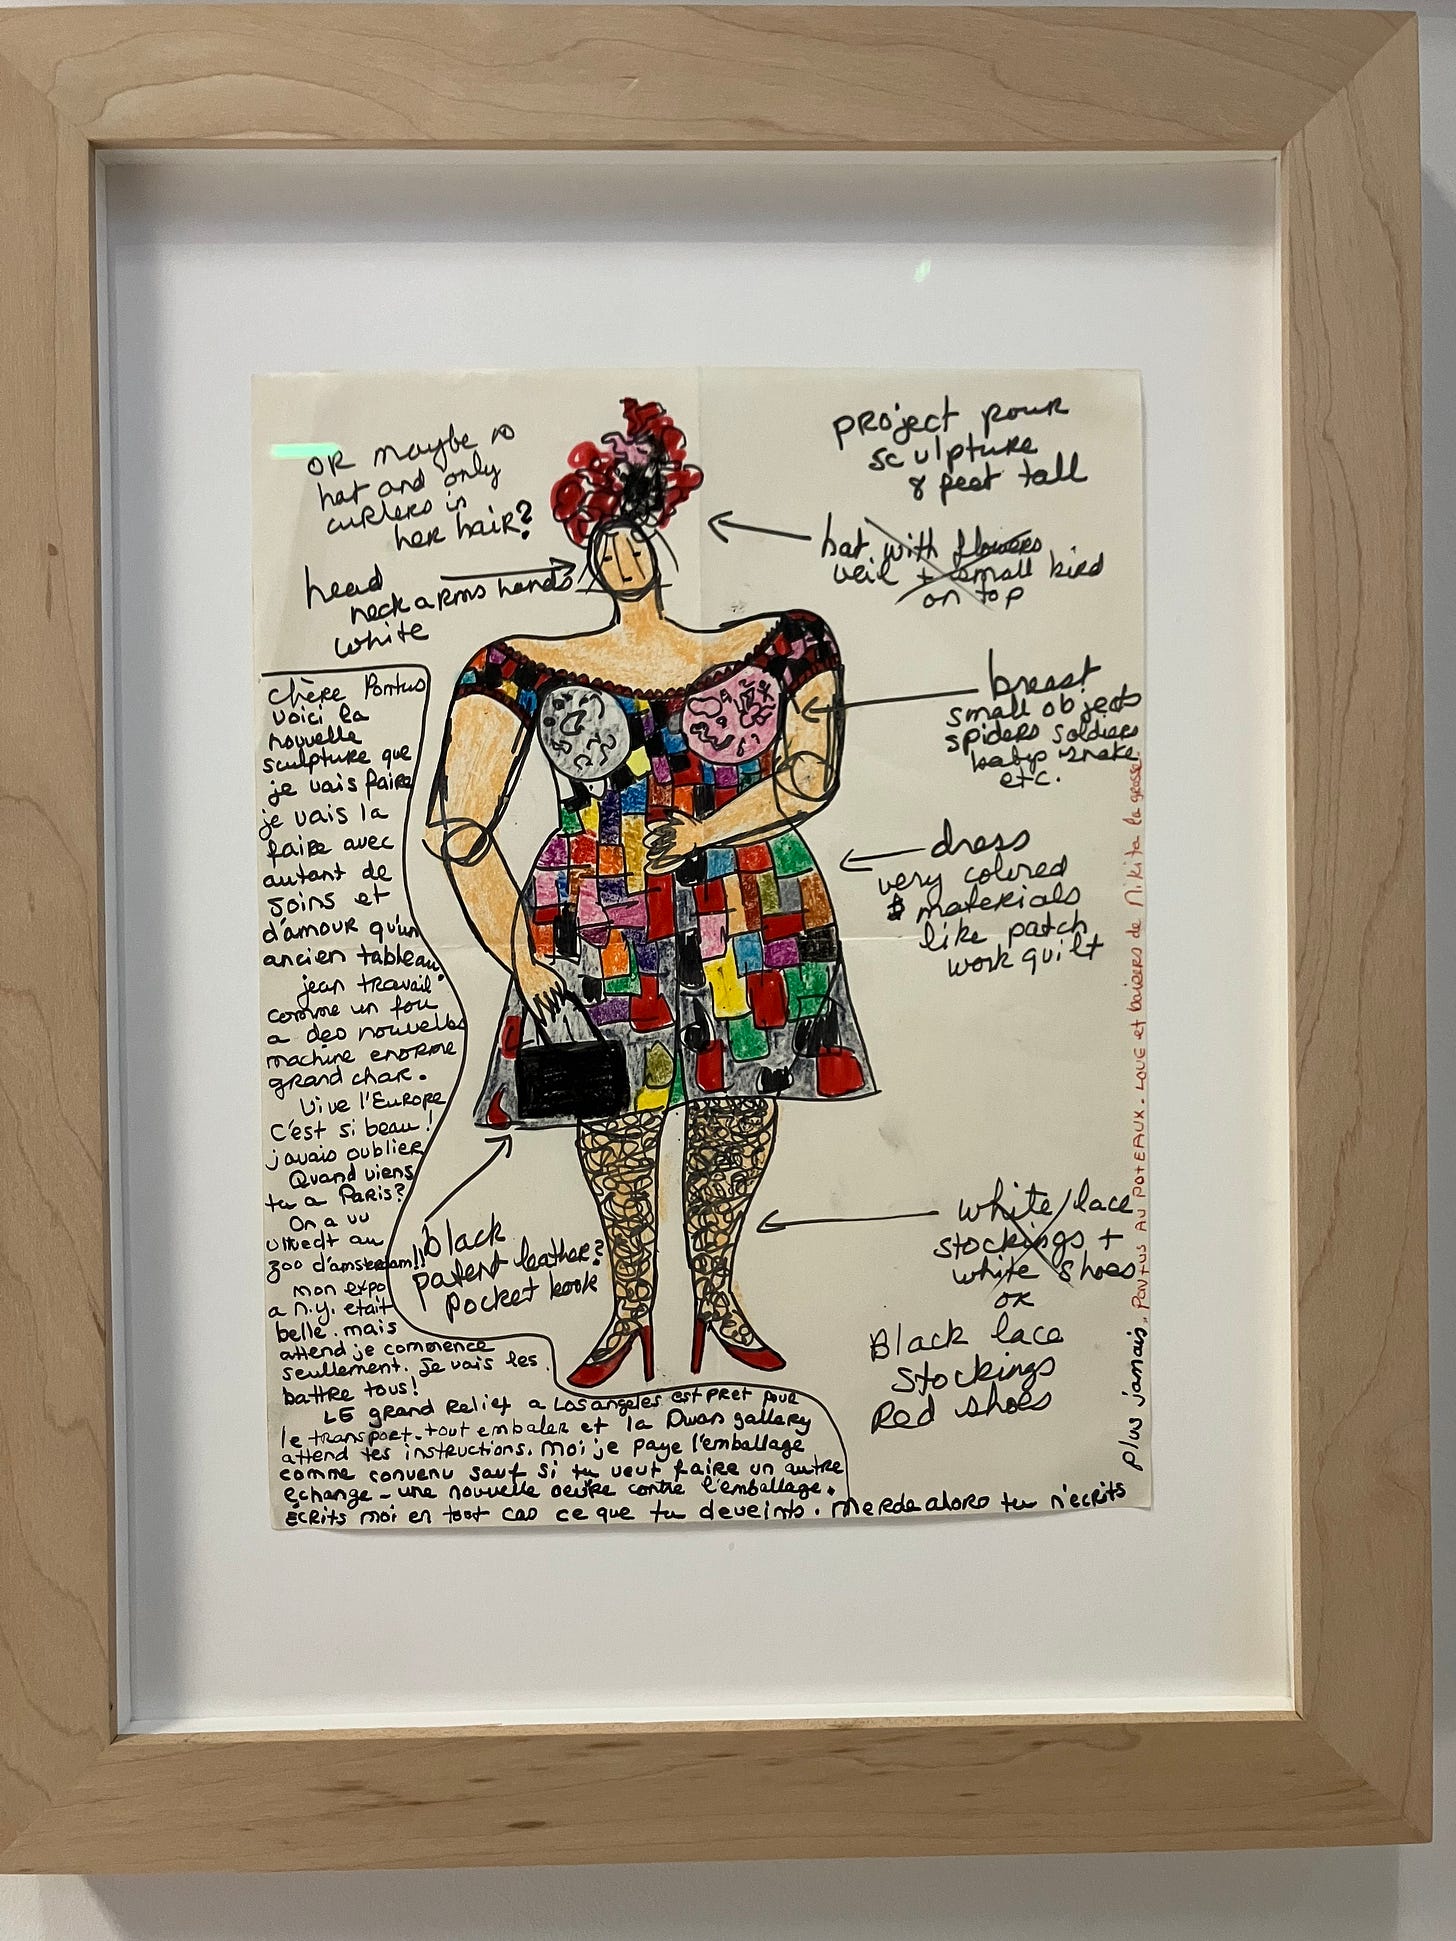 OR maybe no
hat and only
curlers in
her hair?
head
neck arms hands
white
project pour
sculpture
8 feet tall
hat with flowers
veil + small bird
on top
breast
small objects
spiders soldiers
baby snake
etc.
dress
very colored
materials
like patch
work quilt
white lace
stockings +
white shoes
or
Black lace
stockings
Red shoes
black
patent leather?
pocket book
Chère Pontus
voici la
nouvelle
sculpture que
je vais faire
je vais la
faire avec
autant de
soins et
d'amour qu'un
ancien tableau.
jean travail
comme un fou
a des nouvelles
machine enorme
grand char.
Vive l'Europe
C'est si beau!
javais oublier
Quand viens
tu a Paris?
On a vu
au
zoo d'amsterdam!!
mon expo
a n.y. etait
belle. mais
attend je commence
seullement. Je vais les
battre tous!
LE grand Relief a Los angeles est PRET pour
le transport. tout embaler et la Dwan gallery
attend tes instructions. Moi je paye l'emballage
comme convenu sauf si tu veut faire un autre
echange - une nouvelle oeuvre contre l'emballage.
ECRits moi en tout cas ce que tu deveints. Merde alors tu n'ecrits
plus jamais. PONTUS AU POTEAUX. LOVE et baisers de Niki ta la grosse